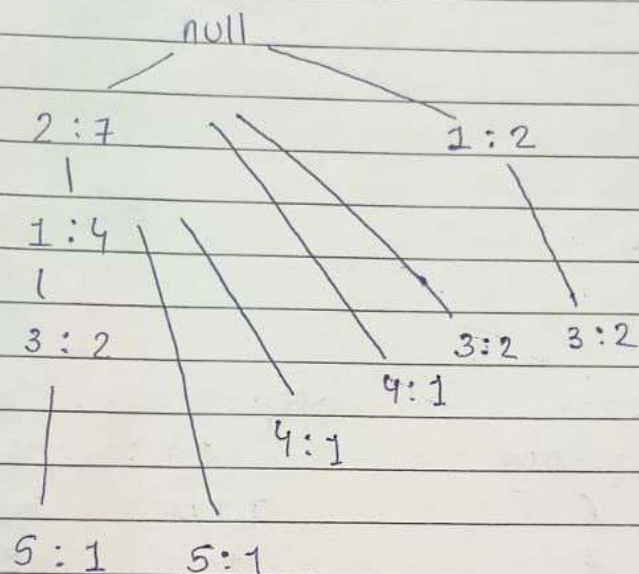 null
2 : 7 1 : 2
1 : 4
3 : 2 3:2 3 : 2
4:1
4:1
5 : 1 5:1